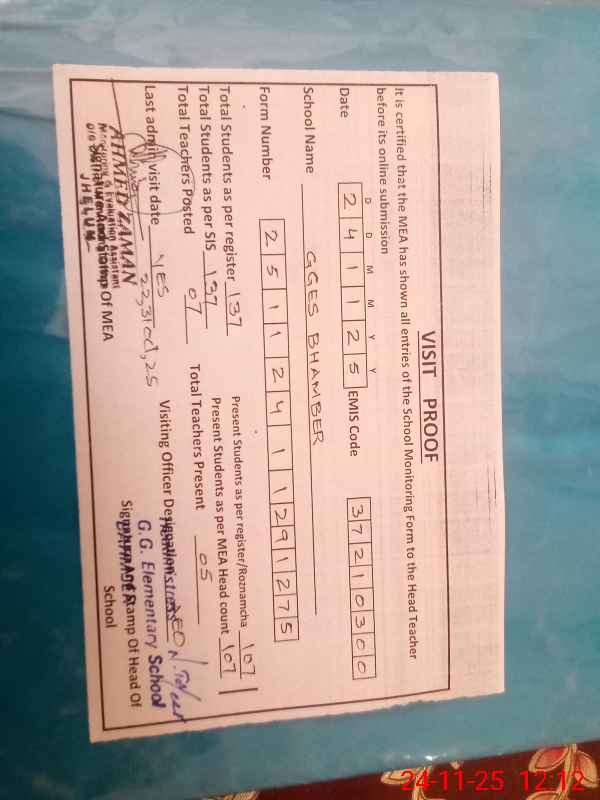 VISIT PROOF
It is certified that the MEA has shown all entries of the School Monitoring Form to the Head Teacher
before its online submission
D D M M Y Y
Date 2 4 1 1 2 5 EMIS Code 3 7 2 1 0 3 0 0
School Name GGES BHAMBER
Form Number 2 5 1 1 2 4 1 1 2 9 1 2 7 5
Total Students as per register 137 Present Students as per register/Roznamcha 107
Total Students as per SIS 137 Present Students as per MEA Head count 107
Total Teachers Posted 07 Total Teachers Present 05
Last admin visit date YES Visiting Officer Designation
AHMED ZAMAN
Monitoring & Evaluation Assistant
Signature And Stamp Of MEA
JHELUM
Headmistress
G.G. Elementary School
Signature And Stamp Of Head Of
School
24-11-25 12:12